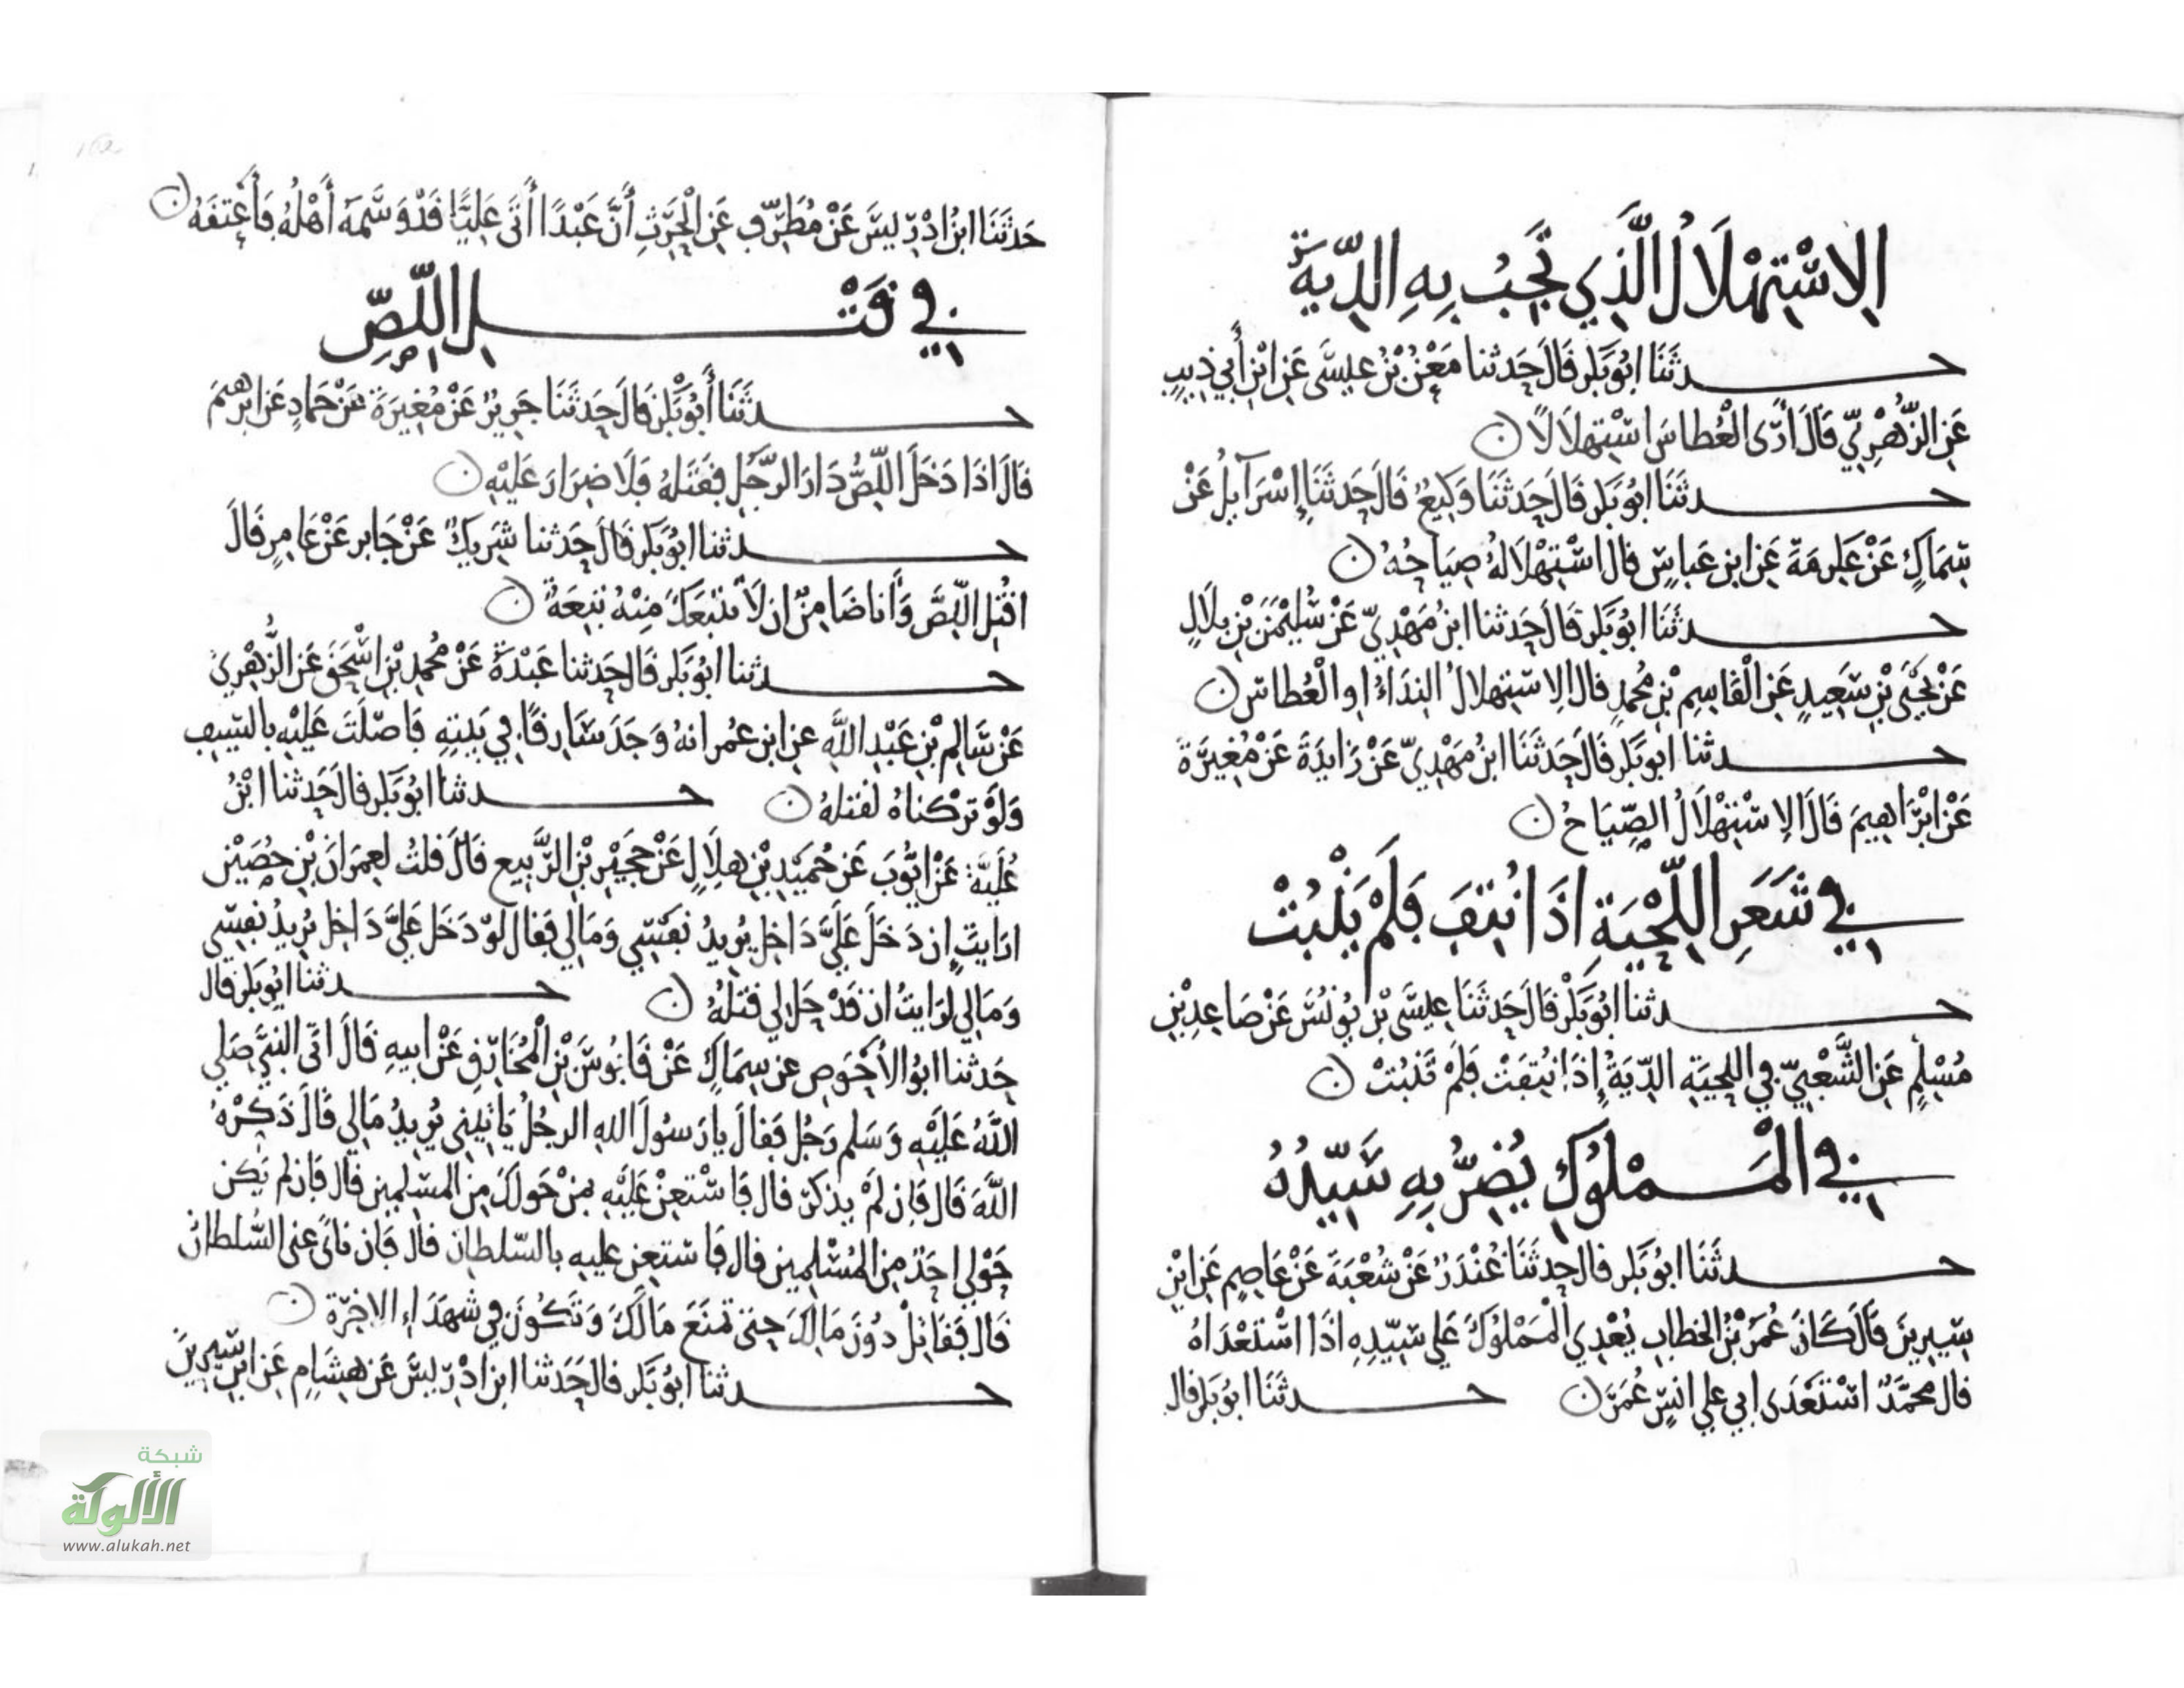 الاسْتِهْلَالُ الَّذِي تَجِبُ بِهِ الدِّيَةُ
حــدثَنَا ابُو بَكر قَالَ حَدثنا مَعْنُ بْنُ عِيسَى عَنِ ابْنِ أَبِي ذِيبٍ
عَنِ الزُّهْرِيِّ قَالَ أَرَى الْعُطاسَ اسْتِهلالًا ن
حــدثَنَا ابُو بَكر قَالَ حَدثَنَا وَكِيعٌ قَالَ حَدثَنَا إسْرَآيِلُ عَنْ
سِمَاكٍ عَنْ عِكرِمَةَ عَنِ ابنِ عَباسٍ قال اسْتِهْلَالُهُ صِيَاحُهُ ن
حــدثَنَا ابُو بَكر قالَ حَدثنا ابنُ مَهْدِيٍّ عَنْ سُلَيْمَنَ بْنِ بِلَالٍ
عَنْ يَحْيَى بْنِ سَعِيدٍ عَنِ الْقَاسِمِ بْنِ مُحمدٍ قال الِاسْتِهلالُ النِدَاءُ او الْعُطاسُ ن
حــدثنا ابو بَكر قَالَ حَدثَنَا ابنُ مَهْدِيٍّ عَنْ زَايِدَةَ عَنْ مُغِيرَةَ
عَنْ ابْرَاهِيمَ قَالَ الِاسْتِهْلَالُ الصِّيَاحُ ن
في شَعَرِ اللِّحْيَةِ اذَا نُتِفَ فَلَمْ يَنْبُتْ
حــدثنا ابُو بَكْر قَالَ حَدثَنَا عِيسَى بْنُ يُونُسَ عَنْ صَاعِدِ بْنِ
مُسْلِمٍ عَنِ الشَّعْبِيِّ في اللحِيَةِ الدِّيَةُ إِذَا نُتِفَتْ فَلَمْ تَنْبُتْ ن
في الْمَــمْلُوكِ يُضِرُّ بِهِ سَيِّدُهُ
حــدثَنَا ابُو بَكر قال حدثَنَا غُنْدَرٌ عَنْ شُعْبَةَ عَنْ عَاصِمٍ عَنِ ابْنِ
سِيرِينَ قَالَ كَانَ عُمَرُ بْنُ الخطابِ يُعْدِي الْمَمْلُوكَ عَلى سَيِّدِهِ اذَا اسْتَعْدَاهُ
قال محمَّدٌ اسْتَعْدَى ابي على انَسٍ عُمَرَ ن حــدثَنَا ابُو بَكر قال
حَدثَنَا ابنُ ادْرِيسَ عَنْ مُطَرِّفٍ عَنِ الْحَرِثِ أَنَّ عَبْدًا أَتَى عَلِيًّا قَدْ وَسَمَهُ أَهْلُهُ فَأَعْتَقَهُ ن
في قَتْــلِ اللِّصِّ
حــدثَنَا أَبُو بَكْر قال حَدثَنَا جَرِيرٌ عَنْ مُغِيرَةَ عَنْ حَمادٍ عَن ابرهِيمَ
قَالَ اذَا دَخَلَ اللِّصُّ دَارَ الرَّجُلِ فَقَتَلَهُ فَلَا ضِرَارَ عَلَيْهِ ن
حــدثنا ابُو بَكر قَالَ حَدثنا شَرِيكٌ عَنْ جَابر عَنْ عَامِرٍ قَالَ
اقْتُلِ اللِّصَّ وَأَنا ضَامِنٌ ان لَا تَتْبَعَكَ مِنْهُ تَبِعَةٌ ن
حــدثنا ابُو بَكر قَال حَدثنا عَبْدَةُ عَنْ مُحمدِ بْنِ اسْحَقَ عَنِ الزُّهْرِيِّ
عَنْ سَالِمِ بْنِ عَبْدِ اللَّهِ عن ابن عُمر انهُ وَجَدَ سَارِقًا في بَيْتِهِ فَاصْلَتَ عَلَيْهِ بالسَّيفِ
وَلَوْ تَرْكناهُ لَقتلهُ ن حــدثنا ابُو بَكر قال حَدثنا ابْنُ
عُلَيَّةَ عَنْ ايُّوبَ عَن حُمَيْدِ بْنِ هِلَالٍ عَنْ حجَيْرِ بْنِ الرَّبِيعِ قَالَ قلتُ لِعِمرَانَ بْنِ حُصَيْنٍ
ارَايتَ ان دَخَلَ عَلَيَّ دَاخِل يُرِيدُ نَفْسِي وَمَالِي فَقال لَوْ دَخَلَ عَلَيَّ دَاخِل يُرِيدُ نَفْسِي
وَمَالِي لرَايتُ ان قَدْ حَلَ لي قَتْلُهُ ن حــدثنا ابُو بَكر قال
حَدثنا ابُو الأَحْوَصِ عن سِمَاكٍ عَنْ قَابُوسَ بْنِ الْمُخَارِقِ عَنْ ابِيهِ قَالَ اتَى النبيَّ صَلى
اللَّهُ عَلَيْهِ وَسَلم رَجُل فَقالَ يا رَسُولَ اللهِ الرجُلُ يَاتِينِي يُرِيدُ مَالِي قَالَ ذَكِّرْهُ
اللَّهَ قَالَ فَإن لَمْ يذكرْ قال فَاسْتعِنْ عَلَيْهِ مَنْ حَولَكَ مِنَ المسلِمِين قال فَإن لم يَكن
حَوْلِي احَدٌ مِنَ المُسْلِمِين قال فَاستَعِن عليهِ بالسّلطانِ قال فَان نأى عني السُّلطانُ
قَال فَقاتِلْ دُونَ مَالِكَ حتى تمنَعَ مَالَكَ وَتَكُونَ في شُهَدَاءِ الاخِرَةِ ن
حــدثنا ابُو بَكر قال حَدَثنا ابن ادْرِيسَ عَن هِشَامٍ عَنِ ابنِ سِيرِينَ
شبكة
الألوكة
www.alukah.net